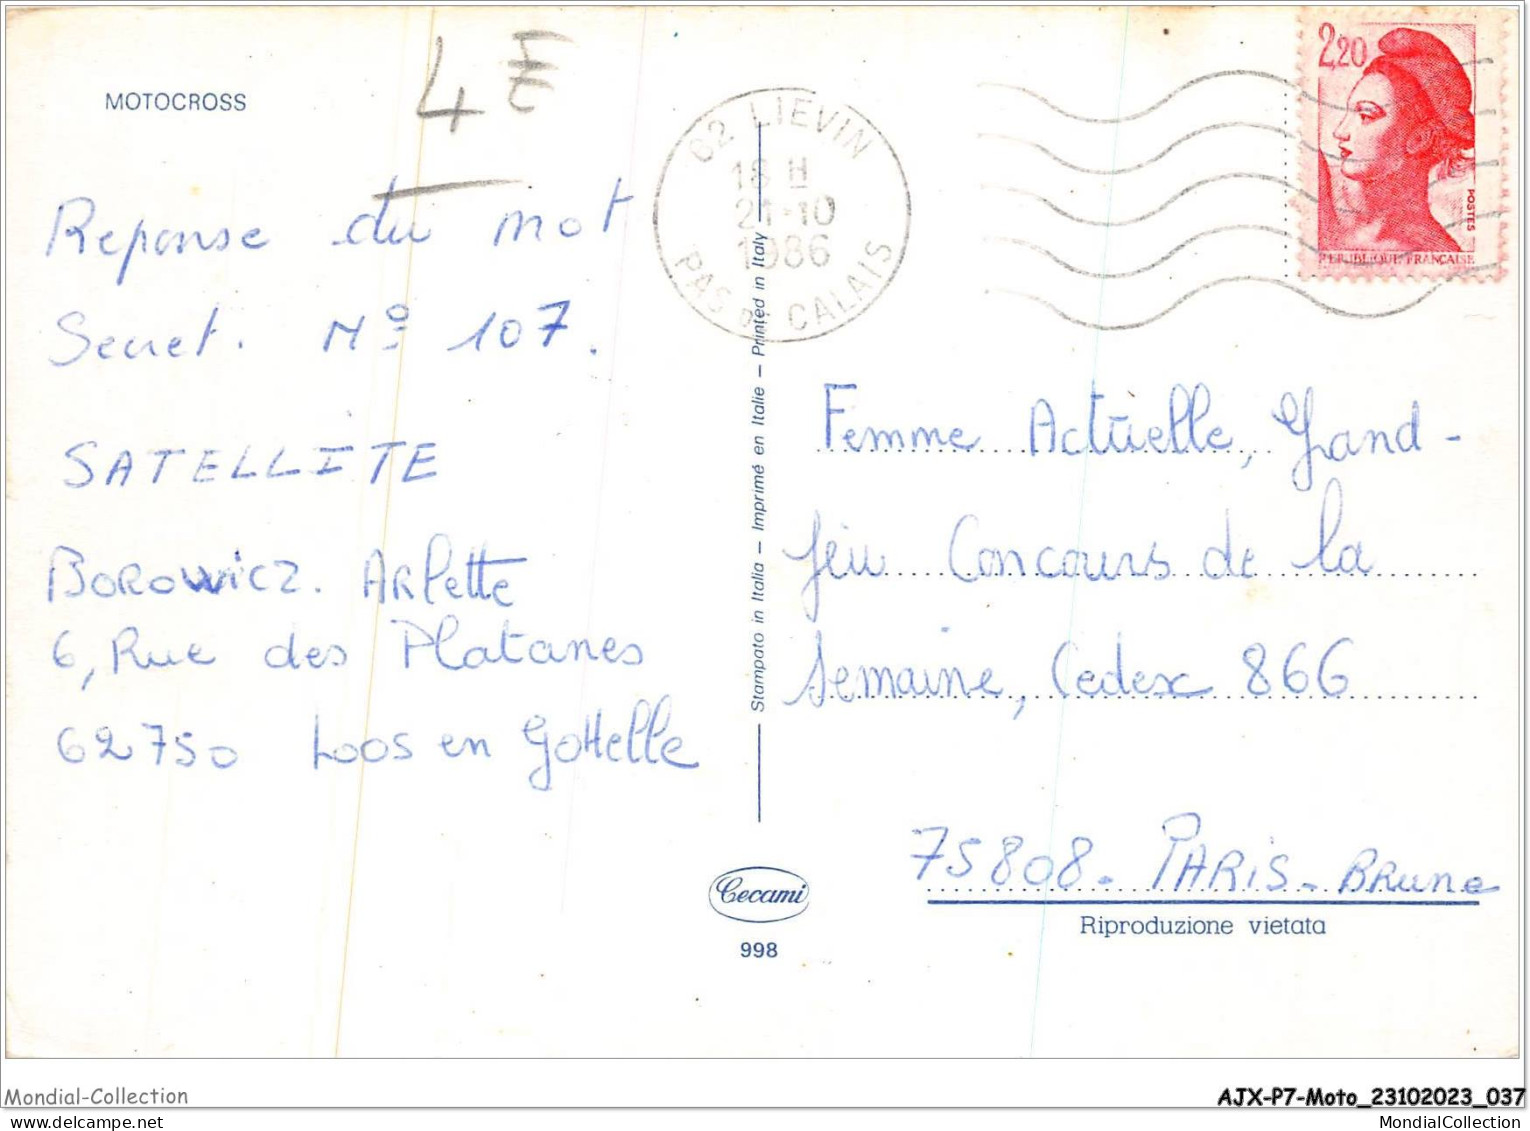 MOTOCROSS
4 €
62 LIEVIN
18 H
21-10
1986
PAS DE CALAIS
2,20
POSTES
REPUBLIQUE FRANCAISE
Reponse du mot
Secret. Nº 107.
SATELLITE
Borowicz. Arlette
6, Rue des Platanes
62750 Loos en Gohelle
Stampato in Italia – Imprimé en Italie – Printed in Italy
Femme Actuelle, Grand-
Jeu Concours de la
Semaine, Cedex 866
75808 - PARIS - BRune
Riproduzione vietata
Cecami
998
Mondial-Collection
AJX-P7-Moto_23102023_037
MondialCollection